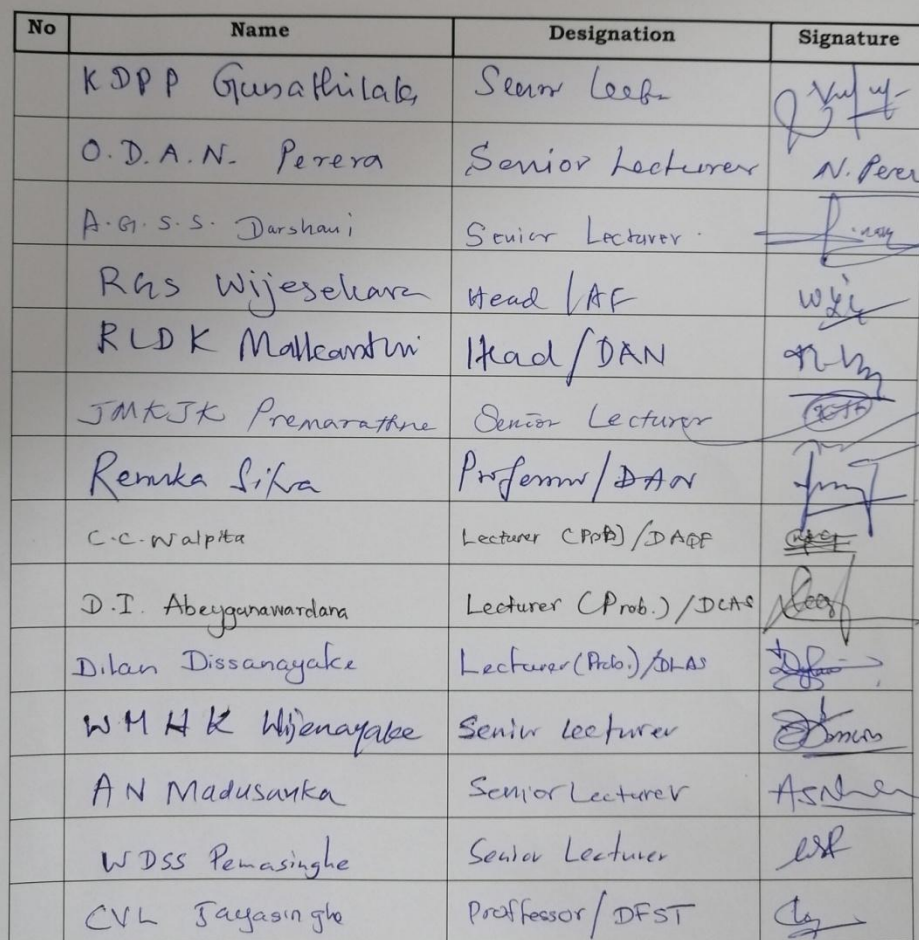 No Name Designation Signature
KDPP Gunathilaka Senior Lect.
O.D.A.N. Perera Senior Lecturer N. Perer
A.G.S.S. Darshani Senior Lecturer
RGS Wijesekara Head / AF
RLDK Malkanthi Head / DAN
JMKJK Premarathne Senior Lecturer
Renuka Silva Professor / DAN
C.C. Walpita Lecturer (Prob) / DAQF
D.I. Abeygunawardana Lecturer (Prob.) / DLAS
Dilan Dissanayake Lecturer (Prob.) / DLAS
WMHK Wijenayake Senior Lecturer
AN Madusanka Senior Lecturer
WDSS Pemasinghe Senior Lecturer
CVL Jayasinghe Proffessor / DFST